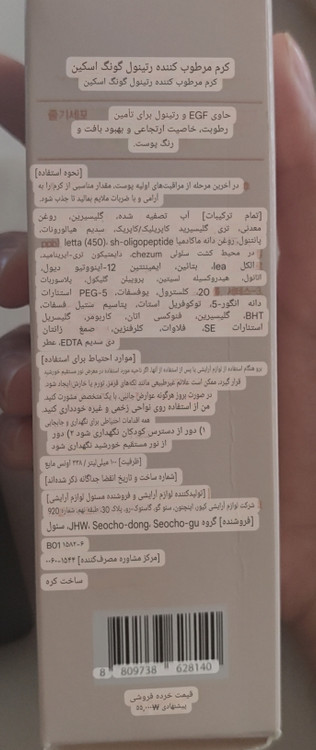 کرم مرطوب کننده رتینول گونگ اسکین
کرم مرطوب کننده رتینول گونگ اسکین
حاوی EGF و رتینول برای تأمین
رطوبت، خاصیت ارتجاعی و بهبود بافت و
رنگ پوست.
[نحوه استفاده]
در آخرین مرحله از مراقبت‌های اولیه پوست، مقدار مناسبی از کرم را به
آرامی و با ضربات ملایم بمالید تا جذب شود.
[تمام ترکیبات] آب تصفیه شده، گلیسیرین، روغن
معدنی، تری گلیسیرید کاپریلیک/کاپریک، سدیم هیالورونات،
پانتنول، روغن دانه ماکادمیا letta (450)، sh-oligopeptide
در محیط کشت سلولی chezum، دایمتیکون تری‌اتیل‌آمید،
الکل lea، بتائین، ایمیتتین 12-اینووتیو دیول،
اتانول، هیدروکسیله لسیتین، پروپیلن گلیکول، پلاسوربات
20، کلسترول، یوفسفات، PEG-5 استئارات
دانه انگور-5، توکوفریل استات، پتاسیم ستیل فسفات،
BHT، گلیسیرین، فنوکسی اتان، کاربومر، گلیسریل
استئارات SE، فلاوات، کلرفنزین، صمغ زانتان
دی سدیم EDTA، عطر
[موارد احتیاط برای استفاده]
قرار گیرد، ممکن است علائم غیرطبیعی مانند لکه‌های قرمز، تورم یا خارش ایجاد شود
در صورت بروز هرگونه عوارض جانبی، با یک متخصص مشورت کنید.
من از استفاده روی نواحی زخمی و غیره خودداری کنید.
همه اقدامات احتیاطی برای نگهداری و جابجایی
۱) دور از دسترس کودکان نگهداری شود ۲) دور
از نور مستقیم خورشید نگهداری شود
[ظرفیت] ۱۰۰ میلی‌لیتر / ۳.۳۸ اونس مایع
[شماره ساخت و تاریخ انقضا جداگانه ذکر شده‌اند]
[تولیدکننده لوازم آرایشی و فروشنده مسئول لوازم آرایشی]
شرکت لوازم آرایشی کیور، اینچئون، سئو گو، گاستوک-رو، پلاک 30، طبقه نهم، شماره 920
[فروشنده] گروه JHW، Seocho-dong، Seocho-gu، سئول
B01 ۱۵۸۲-۶
[مرکز مشاوره مصرف‌کننده] ۱۵۴۴-۰۰۶۰
ساخت کره
8 809738 628140
قیمت خرده فروشی
پیشنهادی ₩۵۵,۰۰۰